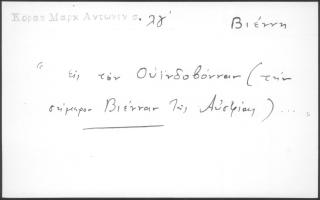 Κοραη Μαρκ Αντωνιν σ. λγ'
Βιέννη
" εις τον Ουϊνδοβόνναν ( την
σήμερον Βιένναν της Αυστρίας ) ...